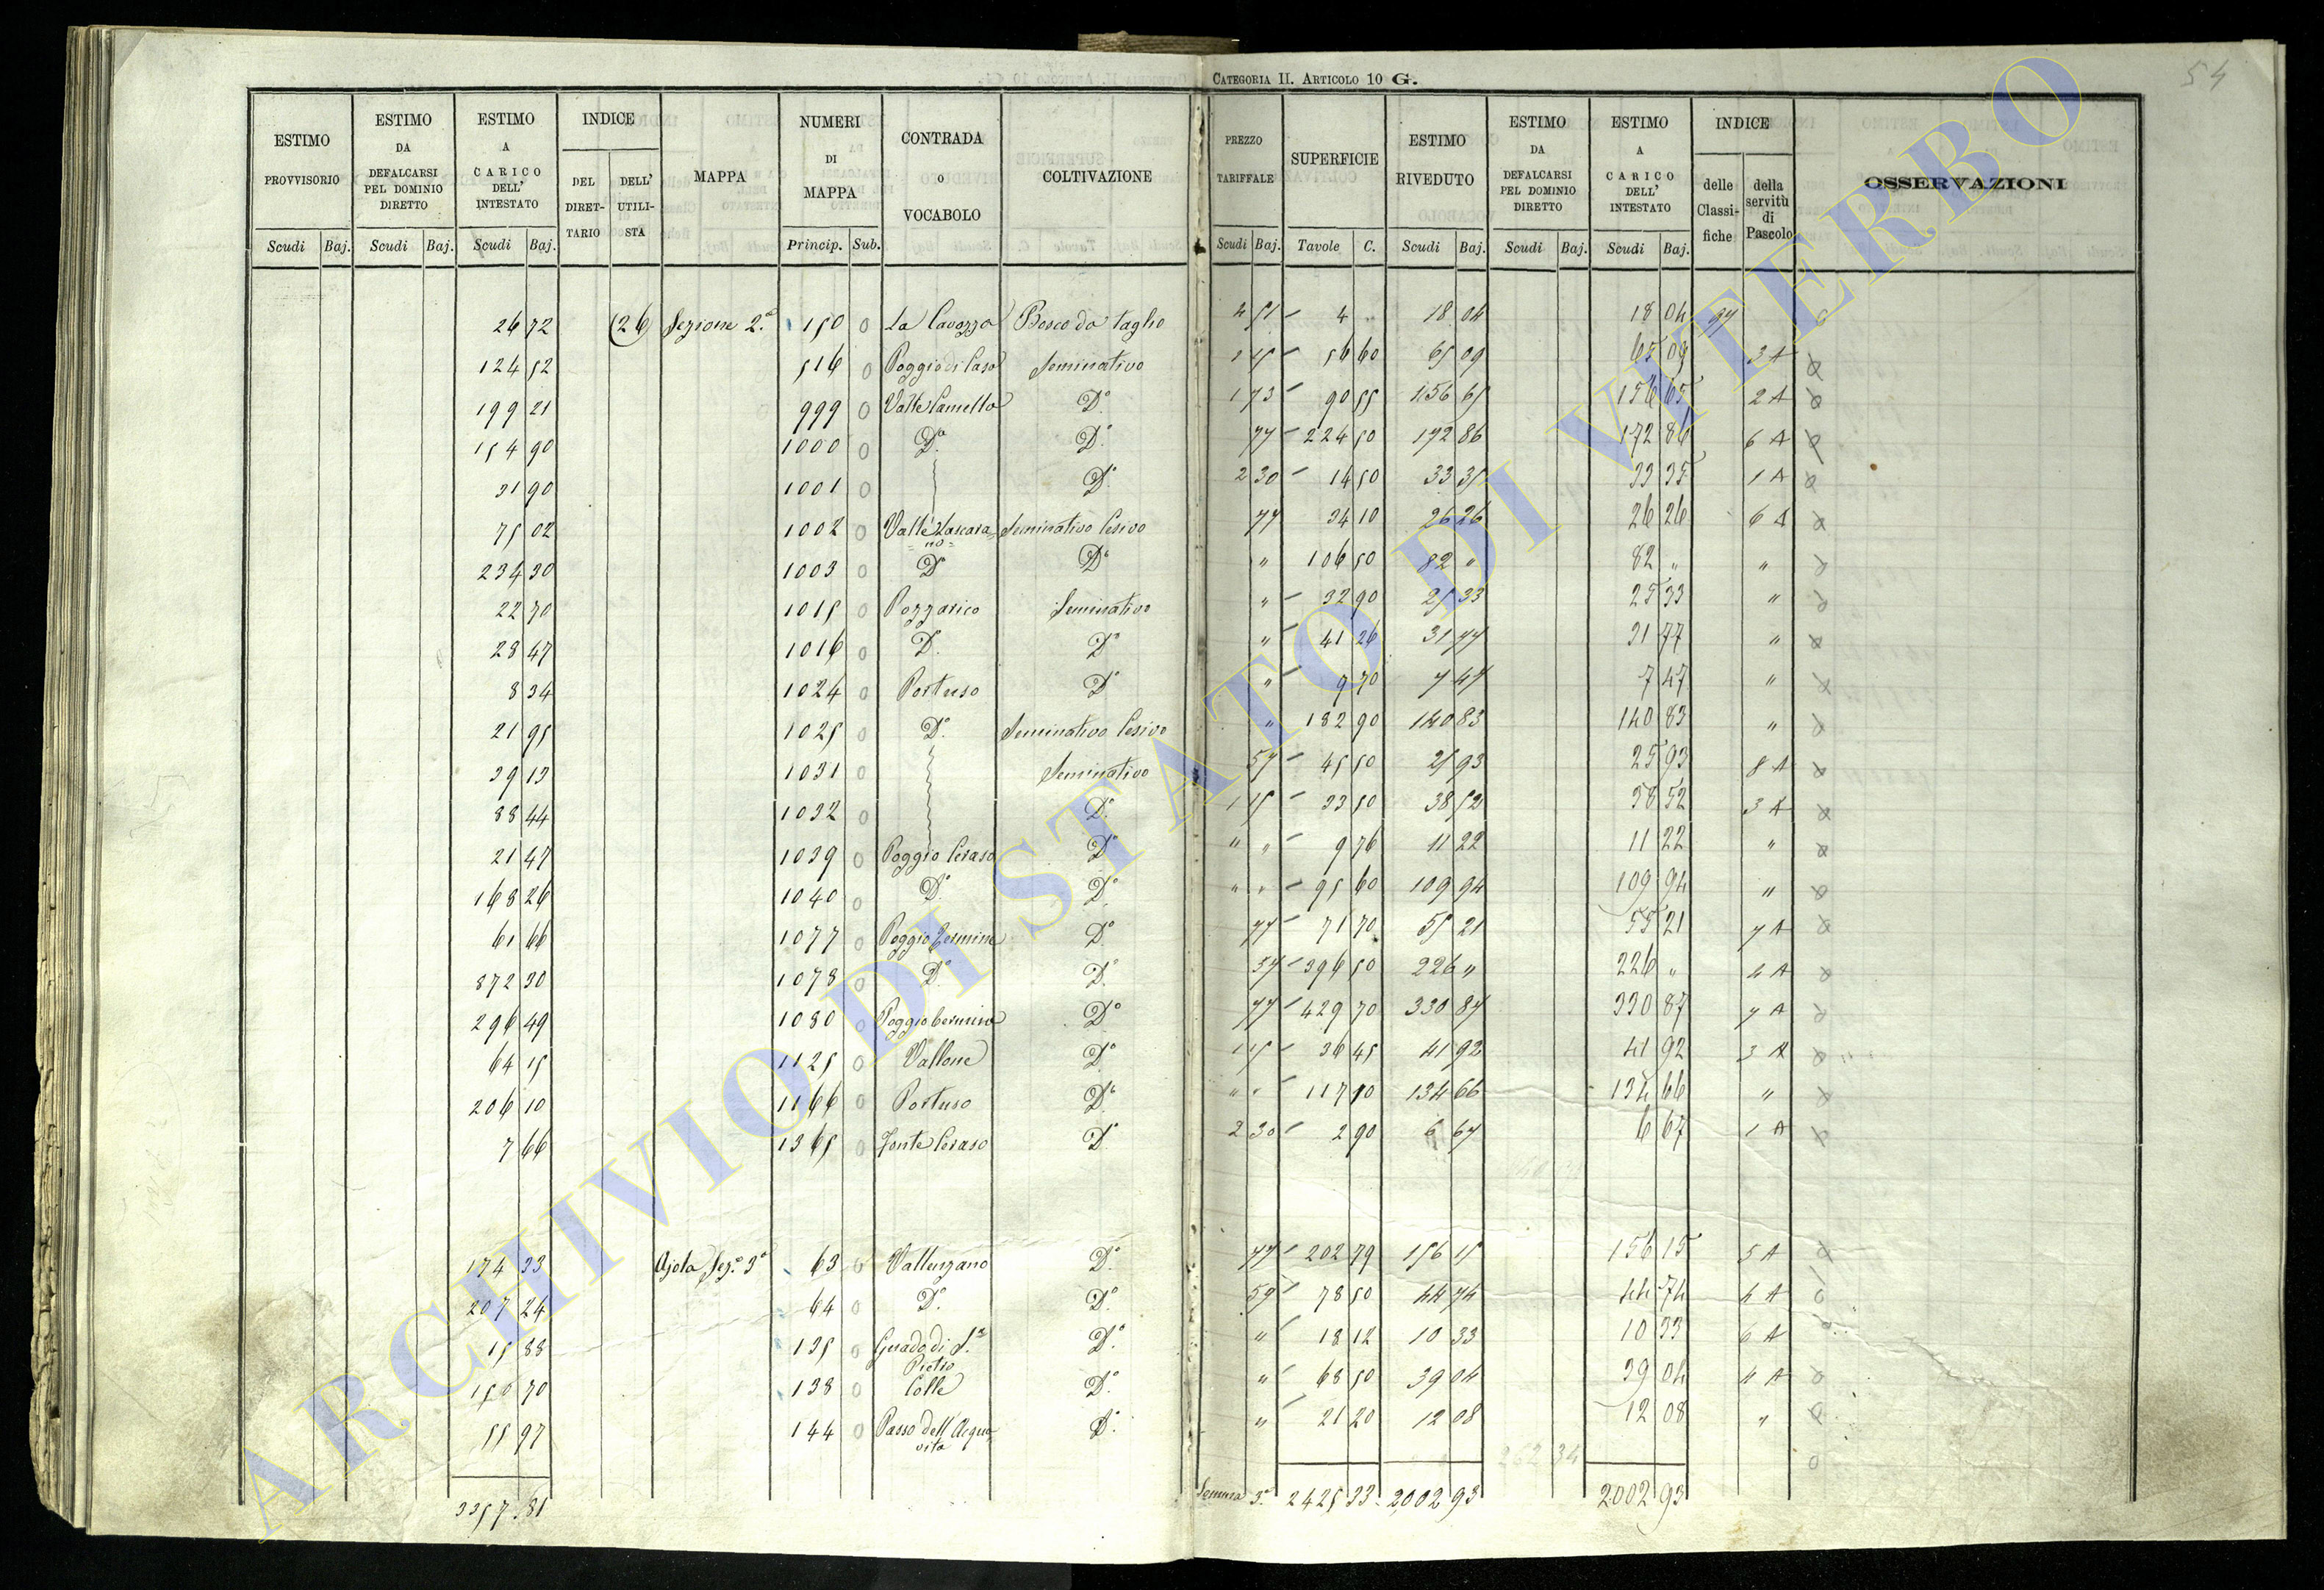 CATEGORIA II. ARTICOLO 10 G.
54
ESTIMO PROVVISORIO | ESTIMO DA DEFALCARSI PEL DOMINIO DIRETTO | ESTIMO A CARICO DELL' INTESTATO | INDICE DEL DIRETTARIO | DELL' UTILISTA | MAPPA | NUMERI DI MAPPA | CONTRADA o VOCABOLO | COLTIVAZIONE | PREZZO TARIFFALE | SUPERFICIE | ESTIMO RIVEDUTO | ESTIMO DA DEFALCARSI PEL DOMINIO DIRETTO | ESTIMO A CARICO DELL' INTESTATO | INDICE delle Classifiche | della servitù di Pascolo | OSSERVAZIONI
Scudi Baj. | Scudi Baj. | Scudi Baj. | Princip. Sub. | Scudi Baj. | Tavole C. | Scudi Baj. | Scudi Baj. | Scudi Baj.
26 72 (26) Sezione 2.a 150 0 La Cavozza Bosco da taglio 4 51 4 " 18 04 18 04
124 52 516 0 Poggio di Caso Seminativo 1 15 56 60 65 09 65 09 3 A
199 21 999 0 Valle Camella Do. 1 73 90 55 156 65 156 65 2 A
154 90 1000 0 Do. Do. 77 224 50 172 86 172 86 6 A
31 90 1001 0 Do. 2 30 14 50 33 35 33 35 1 A
75 02 1002 0 Seminativo Cesivo 77 34 10 26 26 26 26 6 A
234 30 1003 0 Do Do " 106 50 82 " 82 " "
22 70 1015 0 Pozzarico Seminativo " 32 90 25 33 25 33 "
28 47 1016 0 Do. Do " 41 26 31 77 31 77 "
8 34 1024 0 Portuso Do " 9 70 7 47 7 47 "
21 95 1025 0 Do. Seminativo Cesivo " 182 90 140 83 140 83 "
39 13 1031 0 Seminativo 57 45 50 25 93 25 93 8 A
88 44 1032 0 Do. 1 15 33 50 38 52 38 52 3 A
21 47 1039 0 Poggio Ceraso Do " " 9 76 11 22 11 22 "
168 26 1040 0 Do. Do. " " 95 60 109 94 109 94 "
61 66 1077 0 Do. 77 71 70 55 21 55 21 7 A
872 30 1078 0 Do. Do. 57 396 50 226 " 226 " 4 A
296 49 1080 0 Do 77 429 70 330 87 330 87 7 A
64 15 1125 0 Vallone Do 1 15 36 45 41 92 41 92 3 A
206 10 1166 0 Portuso Do. " " 117 10 134 66 134 66 "
7 66 1365 0 Fonte Ceraso Do. 2 30 2 90 6 67 6 67 1 A
174 33 Ajola Sez.e 3a 63 0 Do. 77 202 79 156 15 156 15 5 A
207 24 64 0 Do. Do. 57 78 50 44 74 44 74 4 A
15 88 135 0 Guado di S.n Pietro Do. " 18 12 10 33 10 33 6 A
150 70 138 0 Colle Do. " 68 50 39 04 39 04 4 A
55 97 144 0 Passo dell'Acquavita Do. " 21 20 12 08 12 08 "
262 34
3357.81 Somma 3a 2425 33 2002 93 2002 93
ARCHIVIO DI STATO DI VITERBO